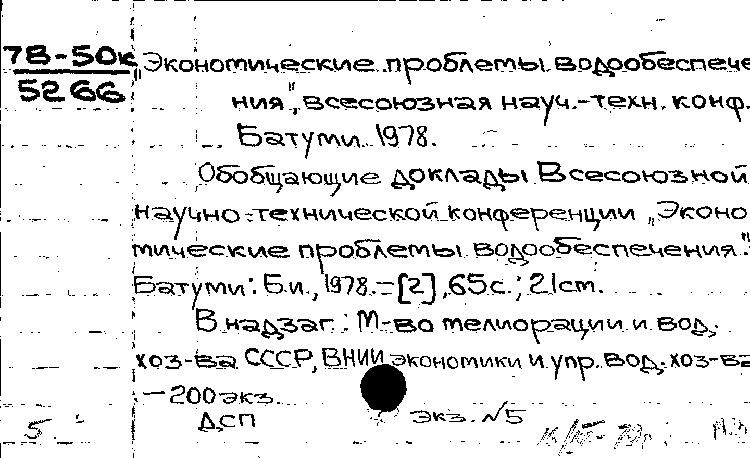 7В-50к
5266
„Экономические проблемы водообеспече
ния", всесоюзная науч.-техн. конф.
Батуми. 1978.
Обобщающие доклады Всесоюзной
научно-технической конференции „Эконо
мические проблемы водообеспечения".
Батуми: Б.и., 1978.-[2], 65с.; 21cm.
В надзаг.: М-во мелиорации и вод.
хоз-ва СССР, ВНИИ экономики и упр. вод. хоз-ва
—200экз.
ДСП экз. №5
5.